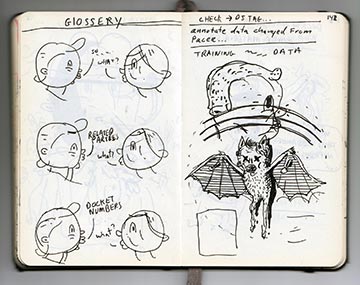 GLOSSERY
so...
what?
RELATED
PARTIES
what?
DOCKET
NUMBERS
what?
CHECK → DS TAG...
142
annotate data changed from
Pacer...
TRAINING DATA